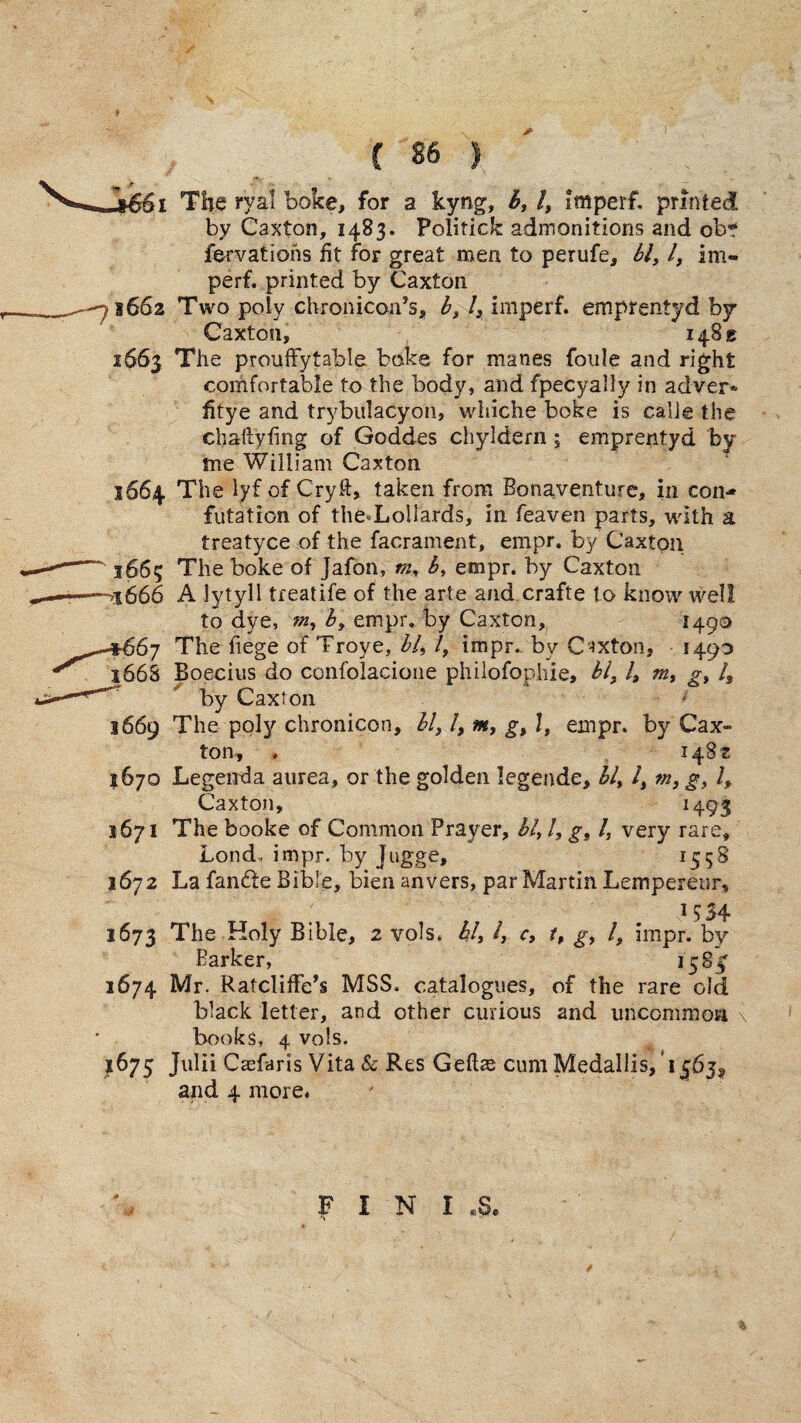 ( 86 )
1661 The ryal boke, for a kyng, b, l, imperf. printed
by Caxton, 1483. Politick admonitions and ob-
ſervations fit for great men to peruſe, bl, l, im-
perf. printed by Caxton
1662 Two poly chronicon's, b, l, imperf. emprentyd by
Caxton, 1482
1663 The prouffytable boke for manes ſoule and right
comfortable to the body, and ſpecyally in adver-
ſitye and trybulacyon, whiche boke is calle the
chaſtyſing of Goddes chyldern; emprentyd by
me William Caxton
1664 The lyf of Cryſt, taken from Bonaventure, in con-
futation of the Lollards, in ſeaven parts, with a
treatyce of the ſacrament, empr. by Caxton
1665 The boke of Jaſon, m, b, empr. by Caxton
1666 A lytyll treatiſe of the arte and crafte to know well
to dye, m, b, empr. by Caxton, 1490
1667 The ſiege of Troye, bl, l, impr. by Caxton, 1490
1668 Boecius do conſolacione philoſophie, bl, l, m, g, l,
by Caxton
1669 The poly chronicon, bl, l, m, g, l, empr. by Cax-
ton, 1482
1670 Legenda aurea, or the golden legende, bl, l, m, g, l,
Caxton, 1493
1671 The booke of Common Prayer, bl, l, g, l, very rare,
Lond. impr. by Jugge, 1558
1672 La ſancte Bible, bien anvers, par Martin Lempereur,
1534
1673 The Holy Bible, 2 vols. bl, l, c, t, g, l, impr. by
Barker, 1585
1674 Mr. Ratcliffe's MSS. catalogues, of the rare old
black letter, and other curious and uncommon
books, 4 vols.
1675 Julii Cæſaris Vita & Res Geſtæ cum Medallis, 1563,
and 4 more.
F I N I S.